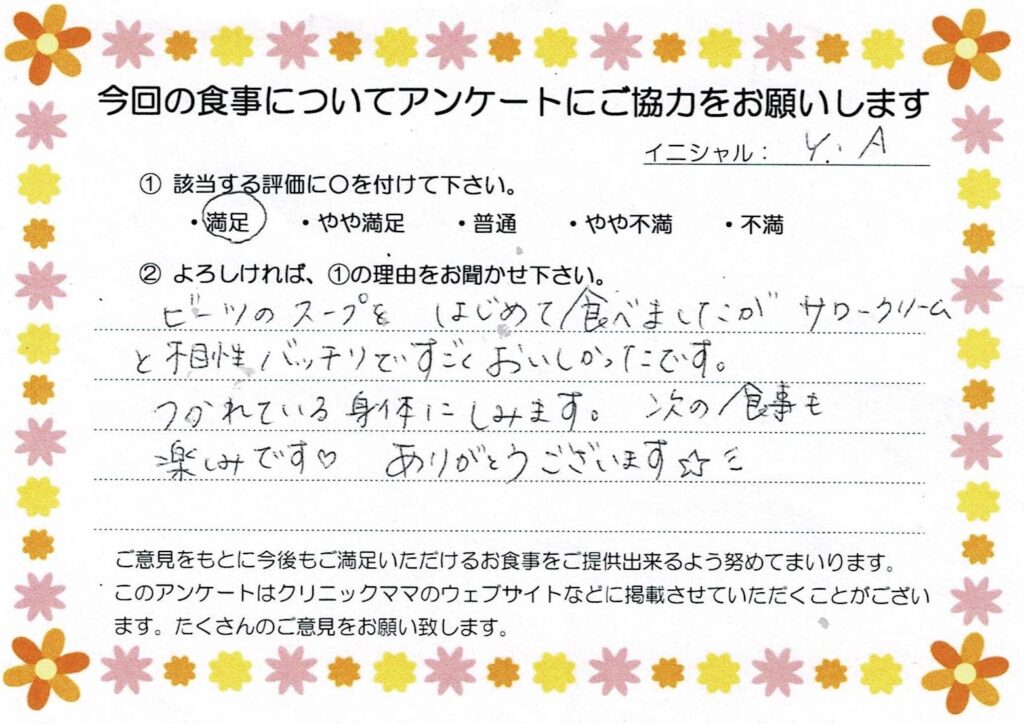 今回の食事についてアンケートにご協力をお願いします
イニシャル： Y. A
① 該当する評価に〇を付けて下さい。
・満足 ・やや満足 ・普通 ・やや不満 ・不満
② よろしければ、①の理由をお聞かせ下さい。
ビーツのスープを はじめて食べましたが サワークリーム
と相性バッチリですごくおいしかったです。
つかれている身体にしみます。 次の食事も
楽しみです♡ ありがとうございます☆ミ
ご意見をもとに今後もご満足いただけるお食事をご提供出来るよう努めてまいります。
このアンケートはクリニックママのウェブサイトなどに掲載させていただくことがござい
ます。たくさんのご意見をお願い致します。